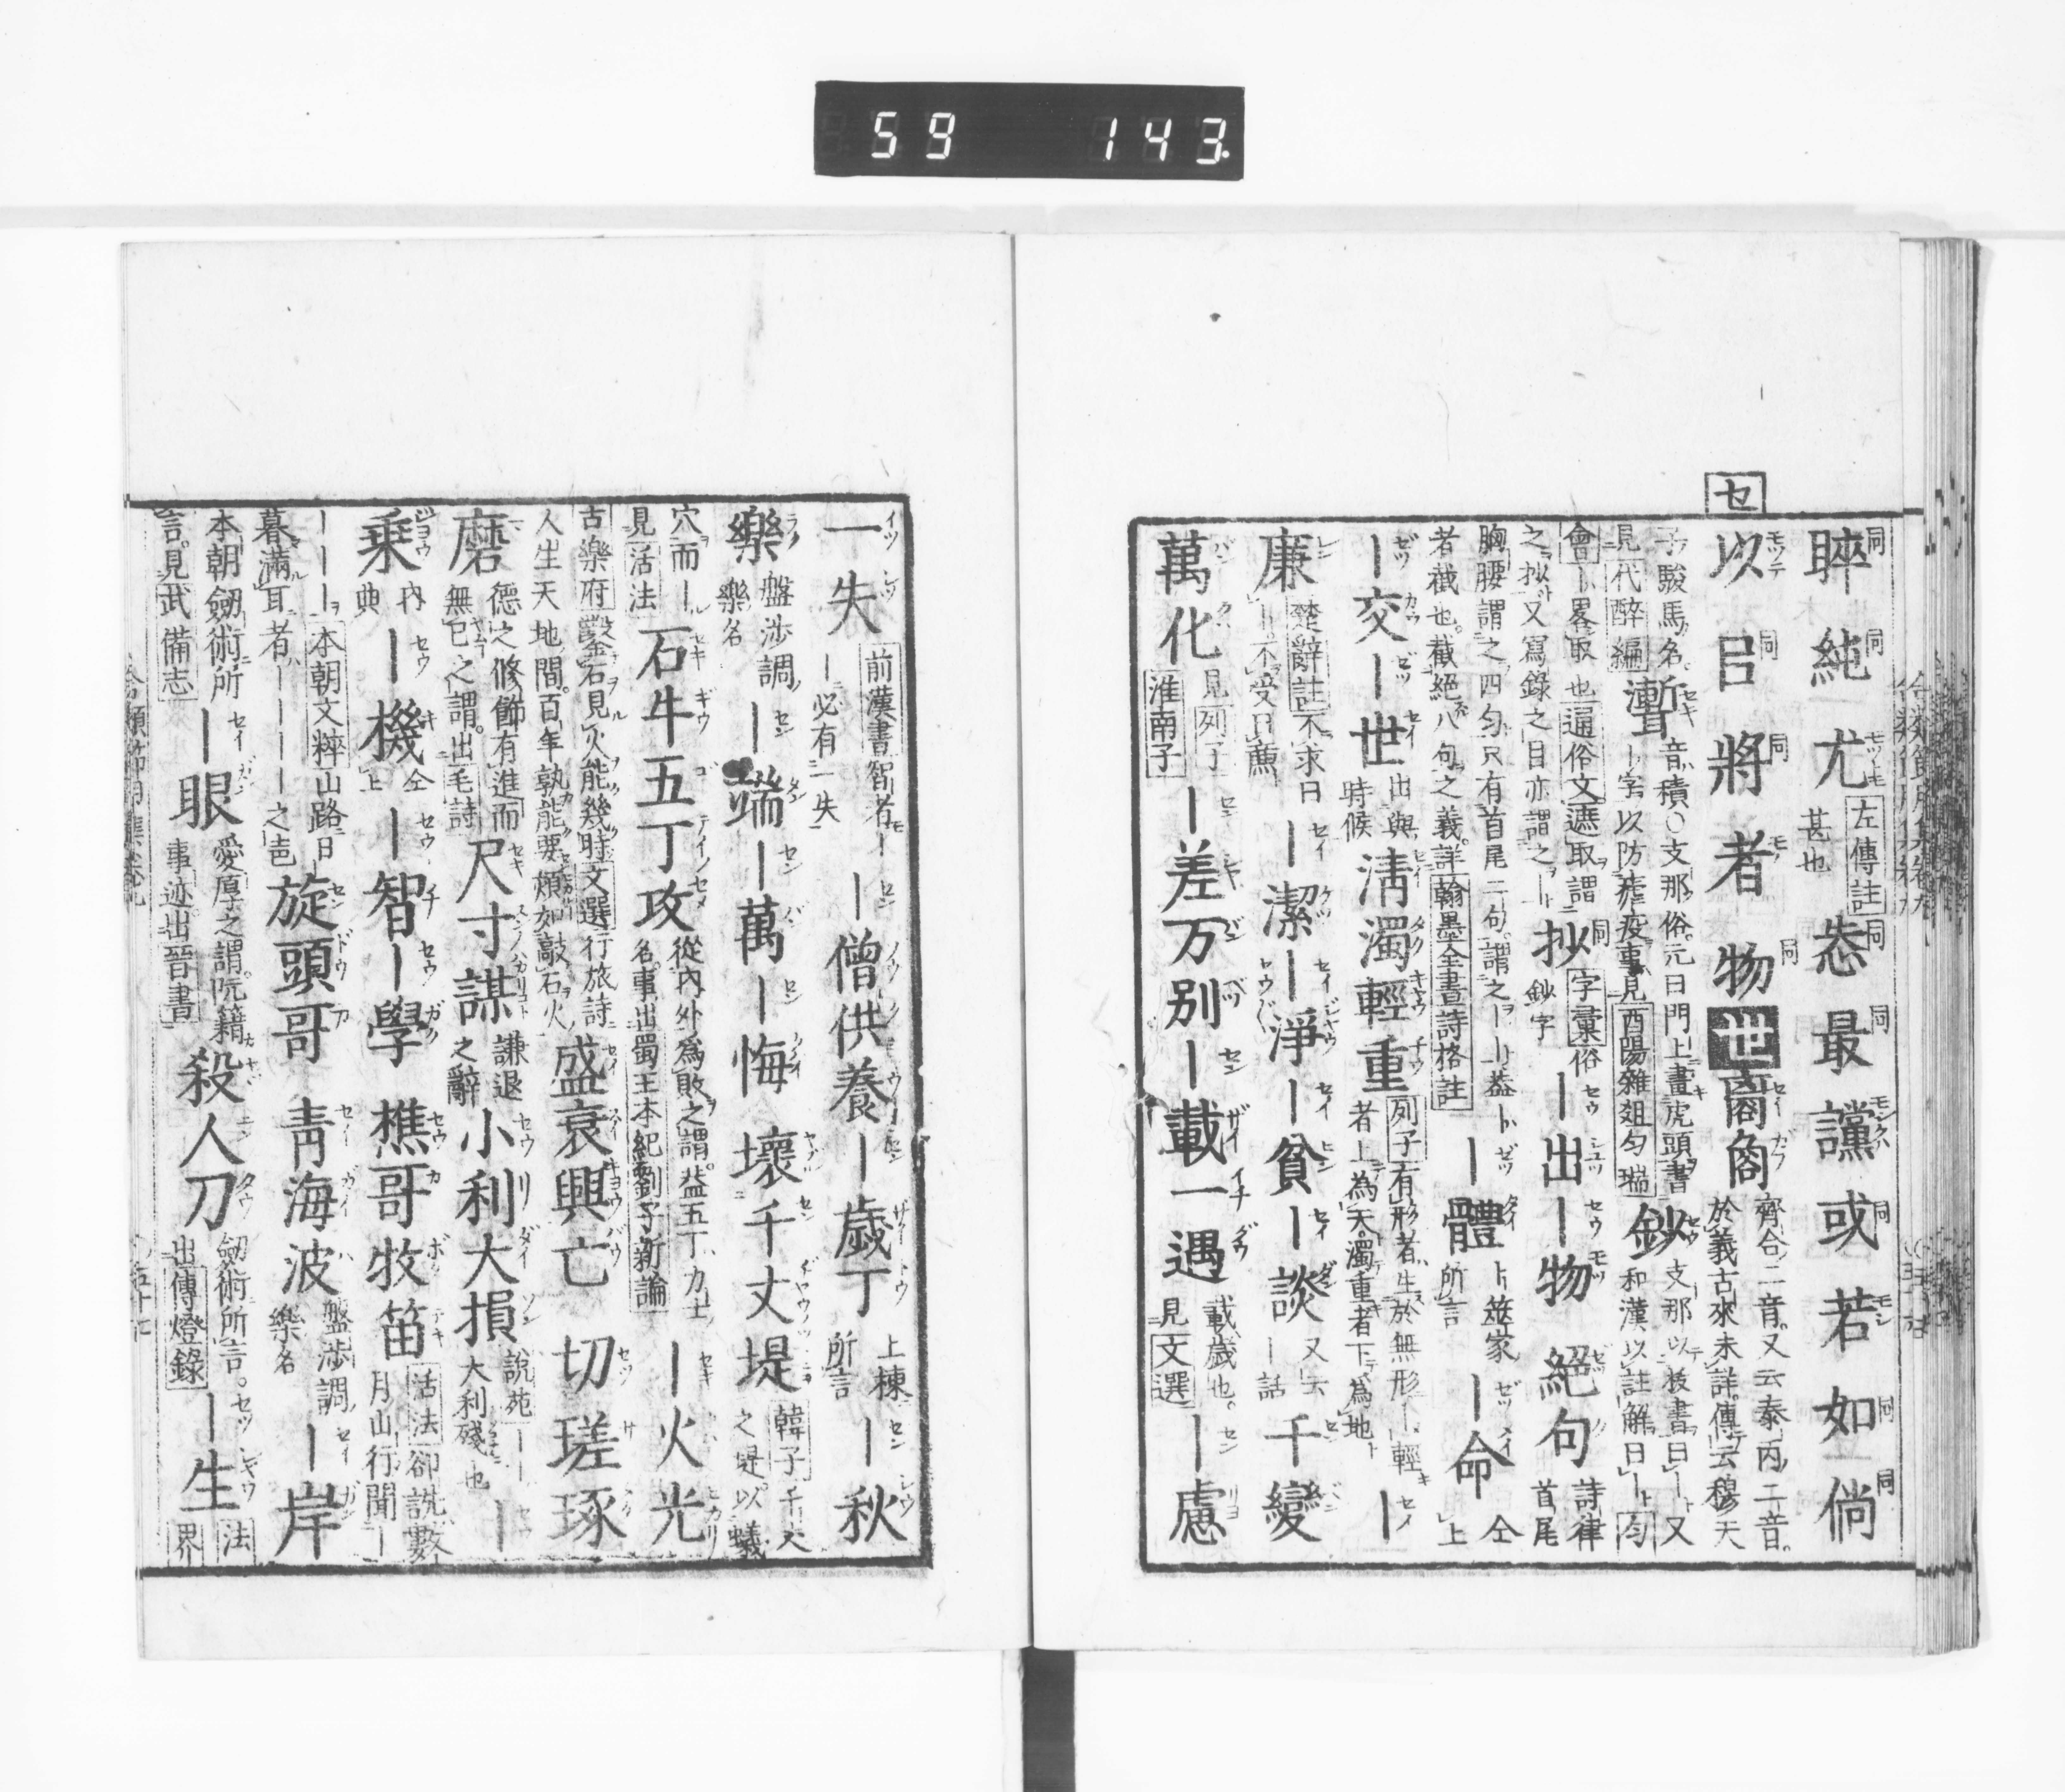 59 143
セ
睟 純 尤 左傳註 甚也 怣 最 讜 或 若 如 倘
以 㠯 將 者 物 世 齊合ノ二音又云泰丙ノ二音 於義古來未詳傳云穆天
子ノ駿馬ノ名見代醉編 聻 音積○支那ノ俗元日門上畫虎頭書
聻字以防瘧疫事見酉陽雜俎勻瑞 鈔 支那以テ抜書曰ト又 和漢以註解曰ト勻
會ト畧取也通俗文遮取謂之抄又寫錄之曰亦謂之ト 抄 字彙俗鈔字 ー出 ー物 絕句 詩律首尾
胸腰謂之四勻只有首尾二句謂之ーー葢ト者截也截絕八句之義詳翰墨全書詩格註 ー體 ト筮家所言 ー命 仝上
ー交 ー世 出與時候 淸濁輕重 列子有形者生於無形ー輕者上為天濁重者下為地 ー
廉 楚辭註不求曰ー不受曰廉 ー潔 ー淨 ー貧 ー談 又云ー話 千變
萬化 見列子淮南子 ー差万別 ー載一遇 載歲也見文選 ー慮
一失 前漢書智者ー必有一失 ー僧供養 ー歲丁 上棟所言 ー秋
樂 盤渉調ノ樂名 ー端 ー萬 ー悔 壞千丈堤 韓子千丈之堤以蟻
穴而ー見活法 石牛五丁攻 從內外為敗之謂葢五丁ハ力士名事出蜀王本紀劉子新論 ー火光
古樂府鑿石見火能幾時文選行旅詩人生天地間百年孰能要頽如敲石火 盛衰興亡 切瑳琢
磨 德之修飾有進而無已之謂出毛詩 尺寸謀 謙退之辭 小利大損 說苑ーー大利殘也 ー
乗 內典 ー機 仝上 ー智 ー學 樵哥牧笛 活法卻說數月山行聞ー
ーーー 本朝文粹山路日暮滿耳者ーーーー之乕 旋頭哥 靑海波 盤渉調ノ樂名 ー岸
本朝劒術所言見武備志 ー眼 愛厚之謂阮籍事迹出晉書 殺人刀 劒術所言出傳燈錄 ー生 法界